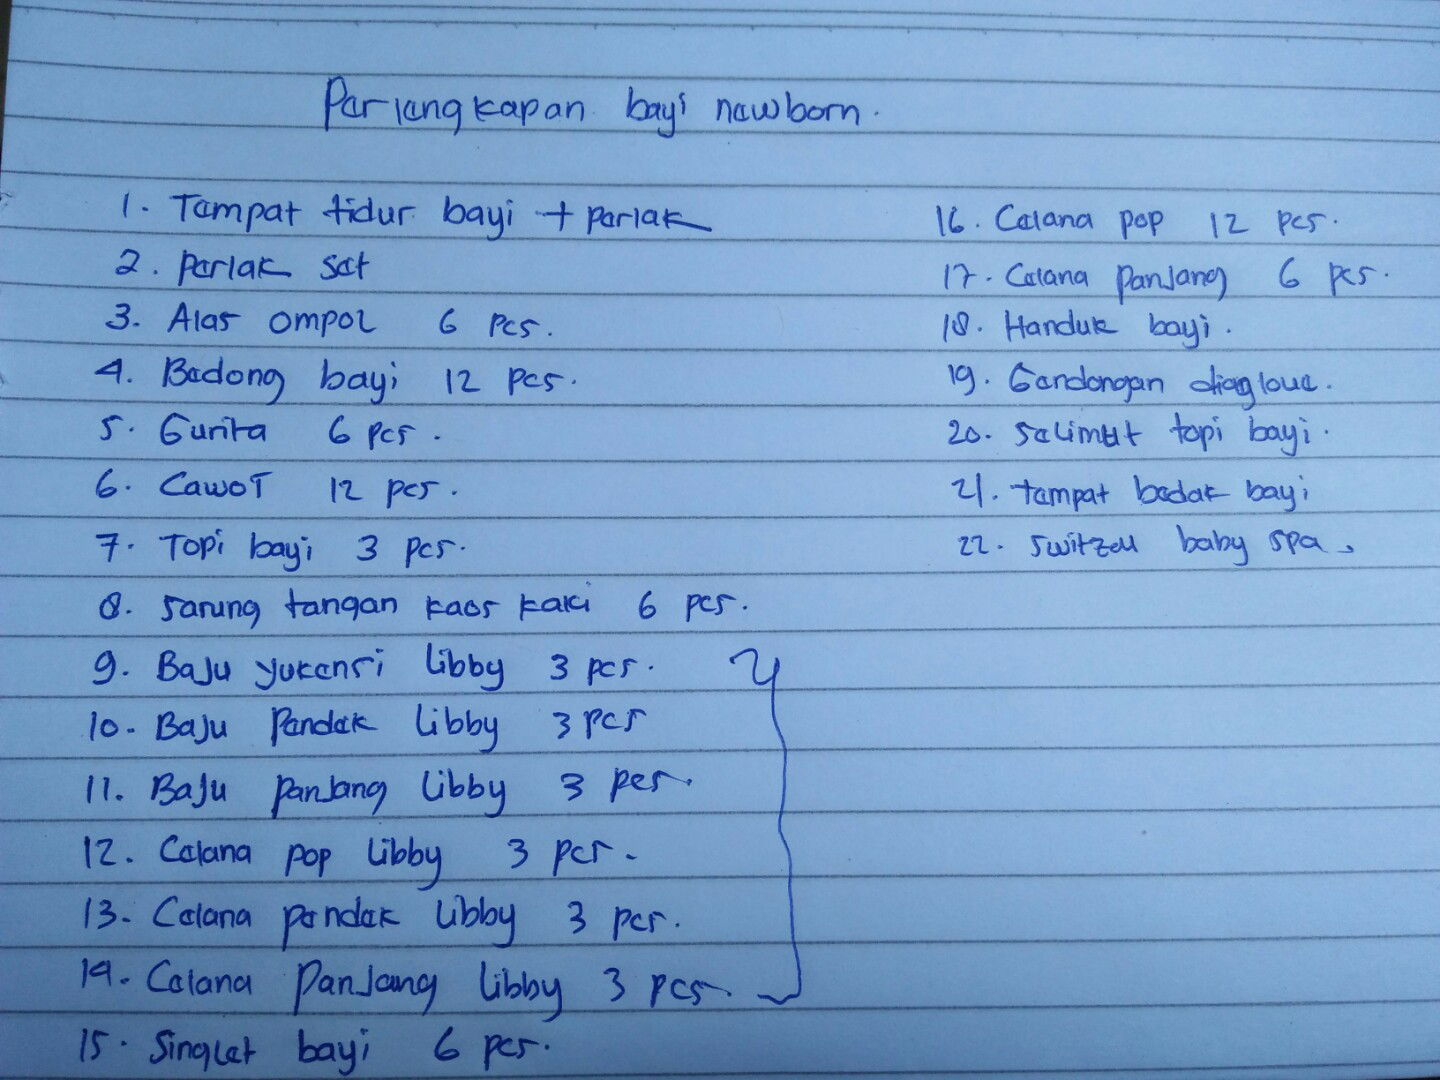 Perlengkapan bayi newborn.
1. Tempat tidur bayi + perlak
2. perlak set
3. Alas ompol 6 pcs.
4. Bedong bayi 12 pcs.
5. Gurita 6 pcs.
6. Cawet 12 pcs.
7. Topi bayi 3 pcs.
8. sarung tangan kaos kaki 6 pcs.
9. Baju yukensi Libby 3 pcs.
10. Baju Pendek Libby 3 pcs
11. Baju panjang Libby 3 pcs.
12. Celana pop Libby 3 pcs.
13. Celana pendek Libby 3 pcs.
14. Celana Panjang Libby 3 pcs.
15. Singlet bayi 6 pcs.
16. Celana pop 12 pcs.
17. Celana Panjang 6 pcs.
18. Handuk bayi.
19. Gendongan dialogue.
20. selimut topi bayi.
21. tempat bedak bayi
22. switzal baby spa.